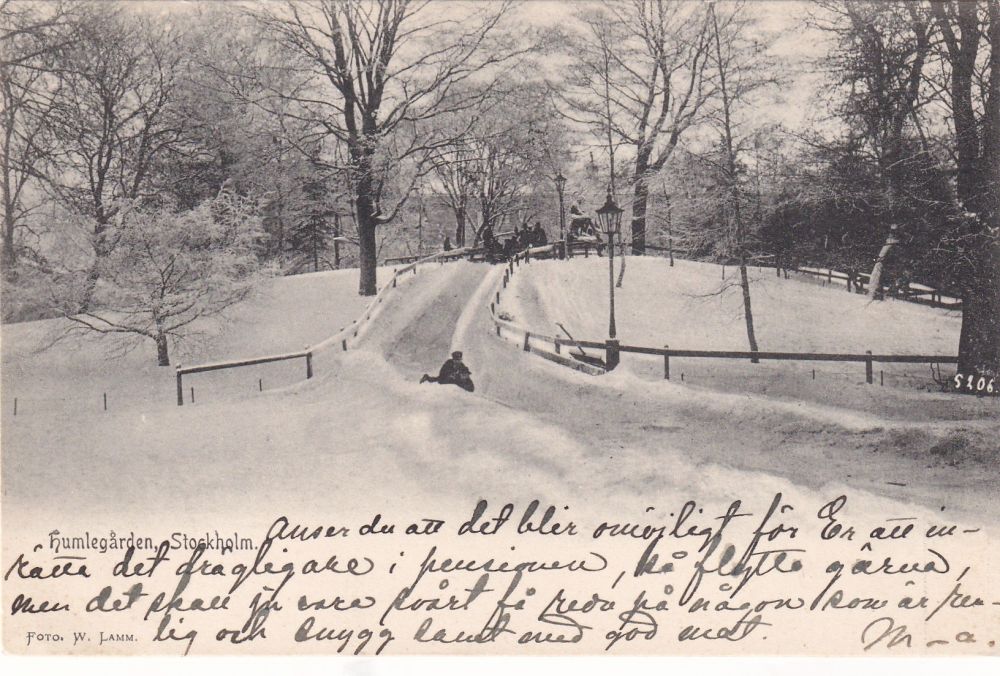 5206.
Humlegården, Stockholm.
Anser du att det blir omöjligt för Er att in-
rätta det drägligare i pensionen, så flytta gärna,
men det skall ju vara svårt få reda på någon som är ren-
lig och snygg samt med god mat. M-a.
FOTO. W. LAMM.